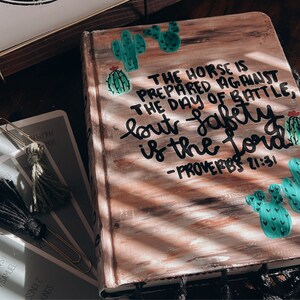 THE HORSE IS
PREPARED AGAINST
THE DAY OF BATTLE,
but safety
is the Lord.
-PROVERBS 21:31